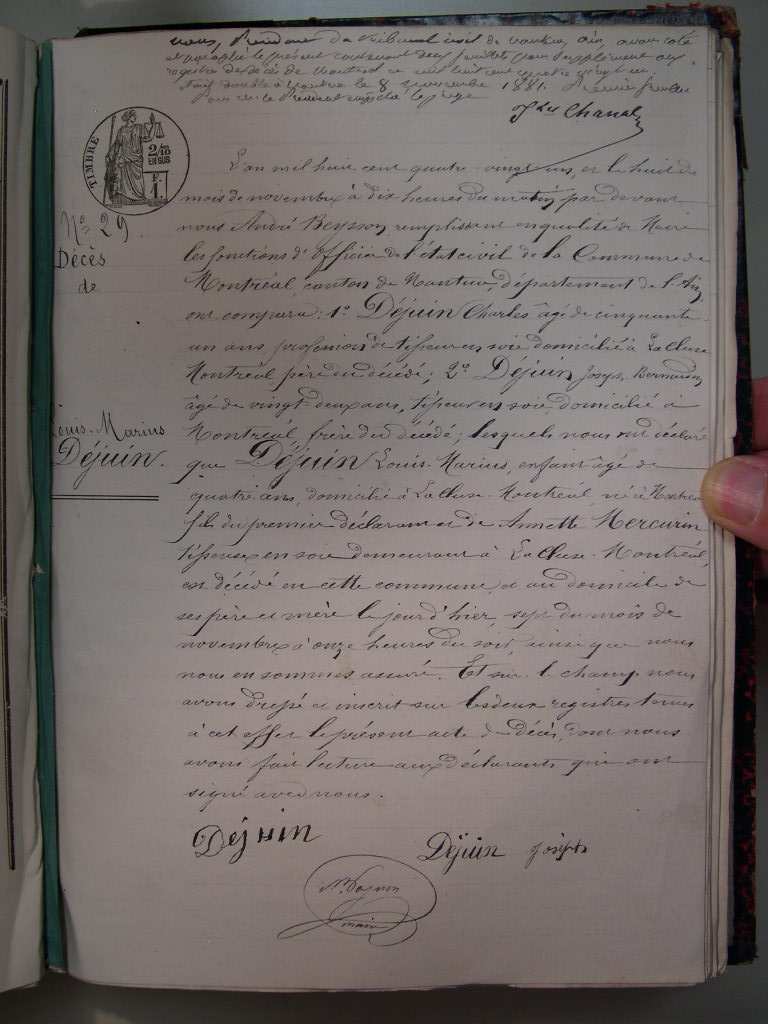 Nous, Président du Tribunal civil de Nantua, Ain, avons coté
et paraphé le présent contenant deux feuillets pour supplément aux
registres de décès de Montréal ce mil huit cent quatre vingt un
fait double à Nantua le 8 novembre 1881. Premier feuillet
Pour le Président empêché le juge
Chanal
TIMBRE
2/10
EN SUS
1F
L'an mil huit cent quatre-vingt-un, et le huit du
mois de novembre à dix heures du matin, par devant
No 29
nous André Beysson remplissant en qualité de Maire
Décès
les fonctions d'Officier de l'état civil de la Commune de
de
Montréal canton de Nantua, département de l'Ain,
ont comparu: 1o Déjuin Charles âgé de cinquante-
un ans profession de tisseur en soie domicilié à La Cluse
Montréal père du décédé; 2o Déjuin Joseph Bernardin
âgé de vingt-deux ans, tisseur en soie, domicilié à
Louis-Marius
Montréal, frère du décédé; lesquels nous ont déclaré
Déjuin.
que Déjuin Louis-Marius, enfant âgé de
quatre ans, domicilié à La Cluse-Montréal, né à Montréal
fils du premier déclarant et de Annette Mercurin
tisseuse en soie demeurant à La Cluse-Montréal,
est décédé en cette commune, et au domicile de
ses père et mère le jour d'hier, sept du mois de
novembre à onze heures du soir, ainsi que nous
nous en sommes assuré. Et sur le champ nous
avons dressé et inscrit sur les deux registres tenus
à cet effet le présent acte de décès, dont nous
avons fait lecture aux déclarants qui ont
signé avec nous.
Déjuin
Déjuin Joseph
maire